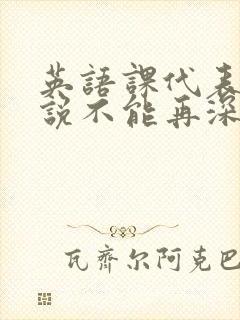 英語課代表
説不能再深
瓦齊尔阿克巴